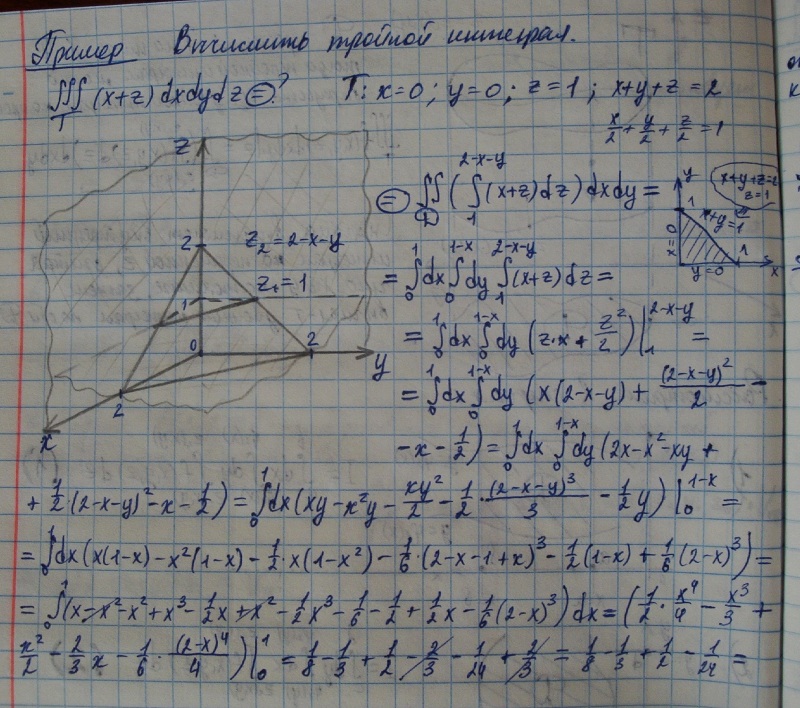 Пример Вычислить тройной интеграл.
∭_T (x+z) dxdydz ⊜? T: x=0; y=0; z=1; x+y+z=2
x/2 + y/2 + z/2 = 1
z
2
z₂=2-x-y
z₁=1
1
0
2
y
2
x
⊜ ∬_D (∫_1^{2-x-y} (x+z)dz) dxdy =
y
x+y+z=2
z=1
1
x+y=1
x=0
y=0
1
x
= ∫_0^1 dx ∫_0^{1-x} dy ∫_1^{2-x-y} (x+z)dz =
= ∫_0^1 dx ∫_0^{1-x} dy (z·x + z²/2)|_1^{2-x-y} =
= ∫_0^1 dx ∫_0^{1-x} dy (x(2-x-y) + (2-x-y)²/2 -
-x - 1/2) = ∫_0^1 dx ∫_0^{1-x} dy (2x-x²-xy +
+ 1/2 (2-x-y)² - x - 1/2) = ∫_0^1 dx (xy - x²y - xy²/2 - 1/2 · (2-x-y)³/3 - 1/2 y)|_0^{1-x} =
= ∫_0^1 dx (x(1-x) - x²(1-x) - 1/2 · x(1-x²) - 1/6 · (2-x-1+x)³ - 1/2 (1-x) + 1/6 (2-x)³) =
= ∫_0^1 (x - x² - x² + x³ - 1/2 x + x² - 1/2 x³ - 1/6 - 1/2 + 1/2 x - 1/6 (2-x)³) dx = (1/2 · x⁴/4 - x³/3 +
x²/2 - 2/3 x - 1/6 · (2-x)⁴/4)|_0^1 = 1/8 - 1/3 + 1/2 - 2/3 - 1/24 + 2/3 = 1/8 - 1/3 + 1/2 - 1/24 =